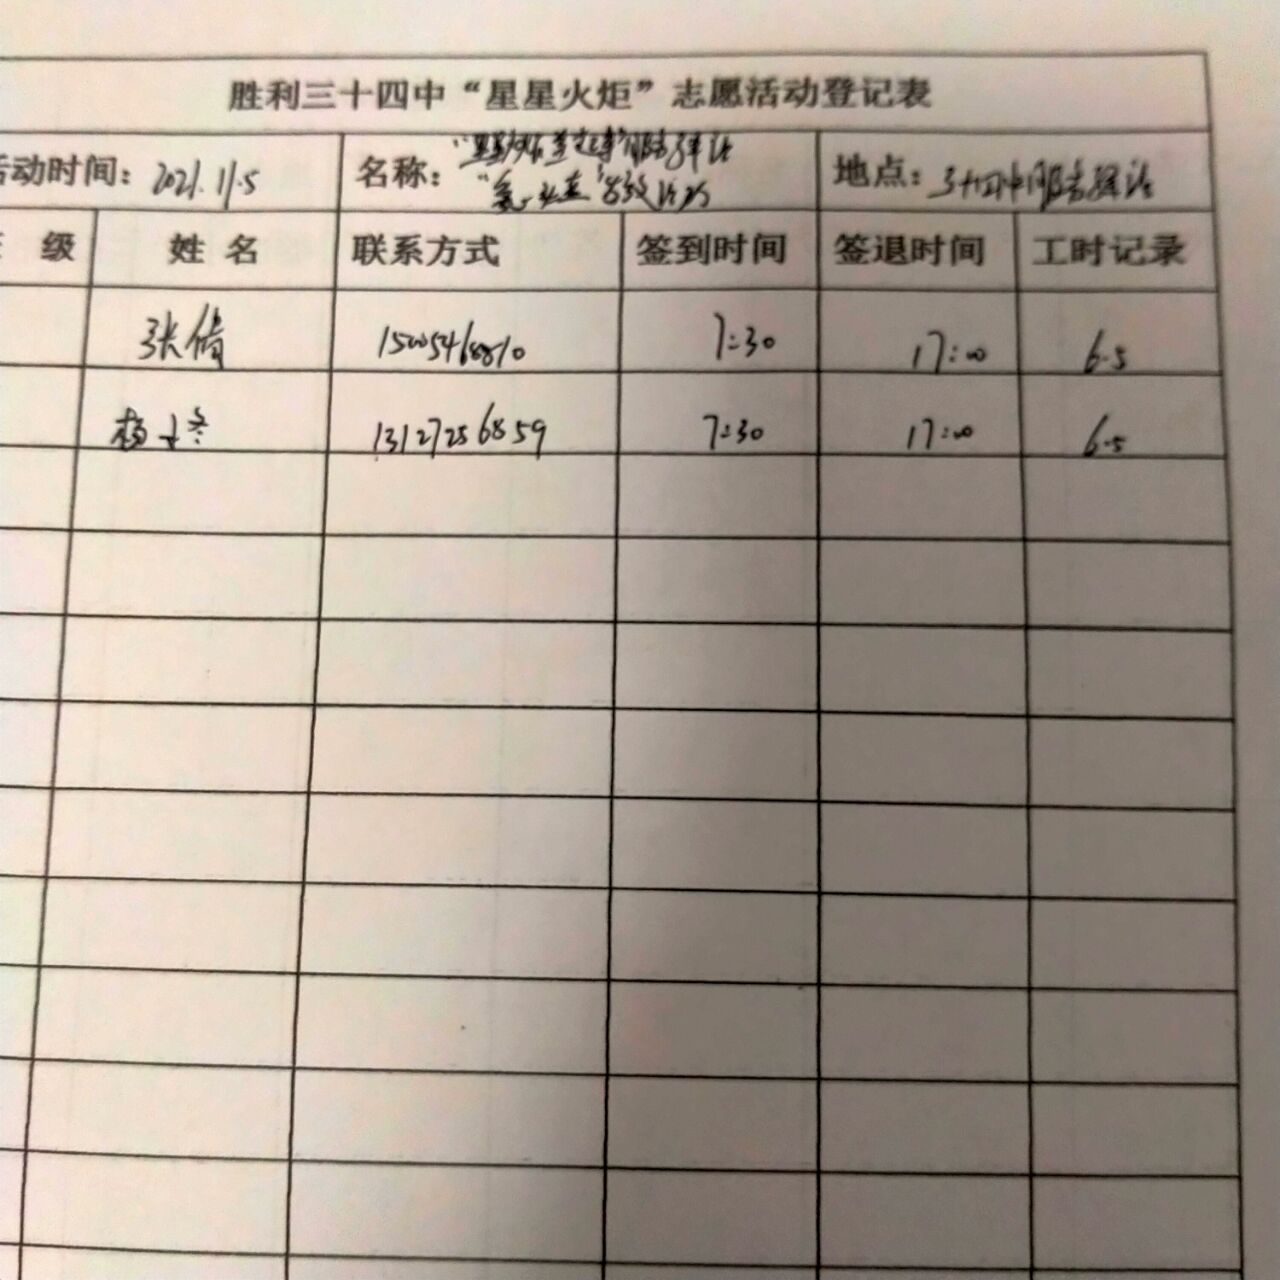 胜利三十四中“星星火炬”志愿活动登记表
活动时间：2021.11.5 名称： 地点：三十四中服务驿站
级 姓名 联系方式 签到时间 签退时间 工时记录
张倩 7:30 17:00 6.5
杨 13127286859 7:30 17:00 6.5